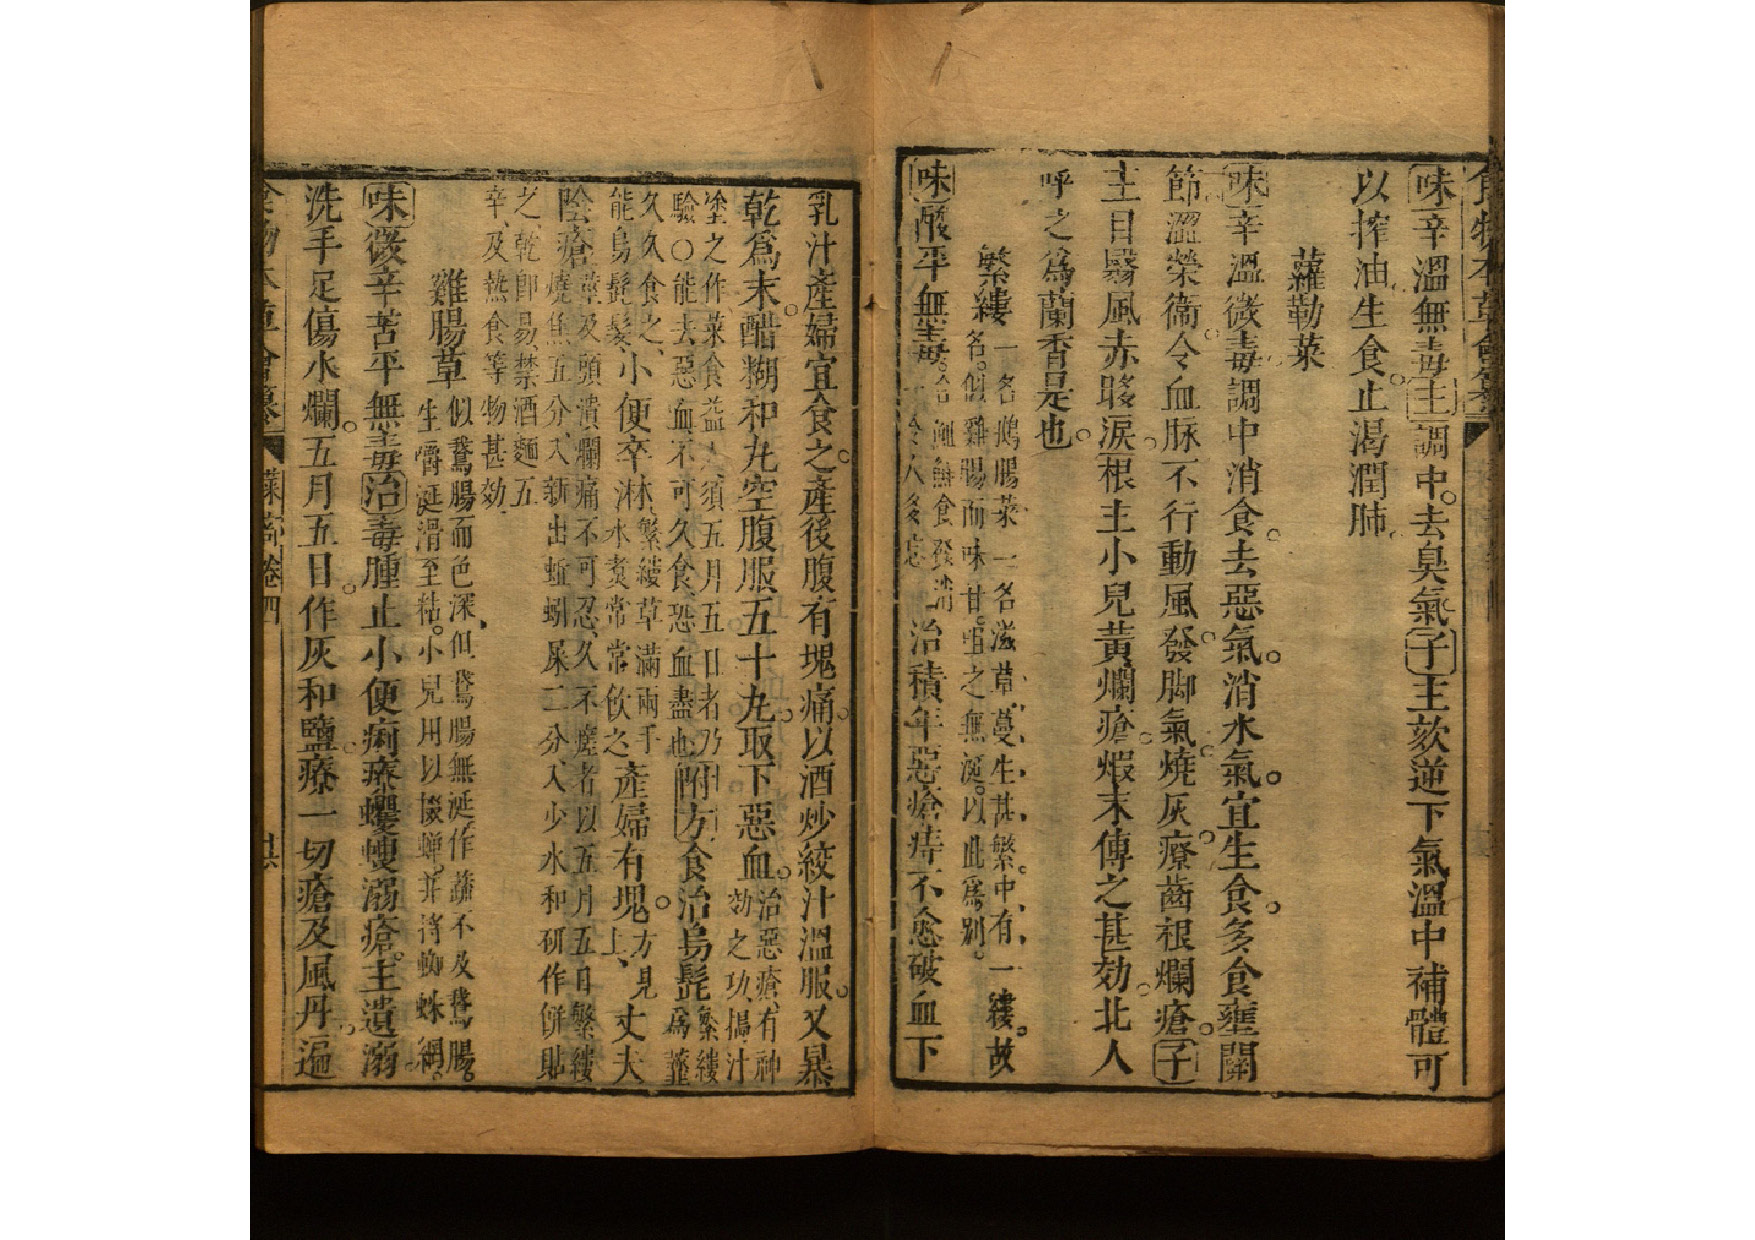 食物本草會纂
味辛溫無毒主調中去臭氣子主欬逆下氣溫中補體可
以搾油生食止渴潤肺
蘿勒菜
味辛溫微毒調中消食去惡氣消水氣宜生食多食壅關
節澀榮衞令血脉不行動風發脚氣燒灰療齒根爛瘡子
主目翳風赤眵淚根主小兒黃爛瘡煆末傅之甚効北人
呼之爲蘭香是也
繁縷一名鵝腸菜一名滋草蔓生甚繁中有一縷故
名似雞腸而味甘咀之無涎以此爲別
味酸平無毒合䱇鮓食發消
令人多忘治積年惡瘡痔不愈破血下
乳汁產婦宜食之產後腹有塊痛以酒炒絞汁溫服又暴
乾爲末醋糊和丸空腹服五十丸取下惡血治惡瘡有神
効之功搗汁
塗之作菜食益人須五月五日者乃
驗○能去惡血不可久食恐血盡也附方食治烏髭繁縷
爲虀
久久食之
能烏髭髮小便卒淋繁縷草滿兩手
水煑常常飲之產婦有塊方見
上丈夫
陰瘡莖及頭潰爛痛不可忍久不瘥者以五月五日繁縷
燒焦五分入新出蚯蚓屎二分入少水和研作餅貼
之乾卽易禁酒麵五
辛及熱食等物甚効
雞腸草似鵞腸而色深但鵞腸無涎作蔬不及鵞腸
生嚼涎滑至秥小兒用以掇蟬并揞蜘蛛網
味微辛苦平無毒治毒腫止小便痢療蠼螋溺瘡主遺溺
洗手足傷水爛五月五日作灰和鹽療一切瘡及風丹遍
食物本草會纂 蔬部卷四